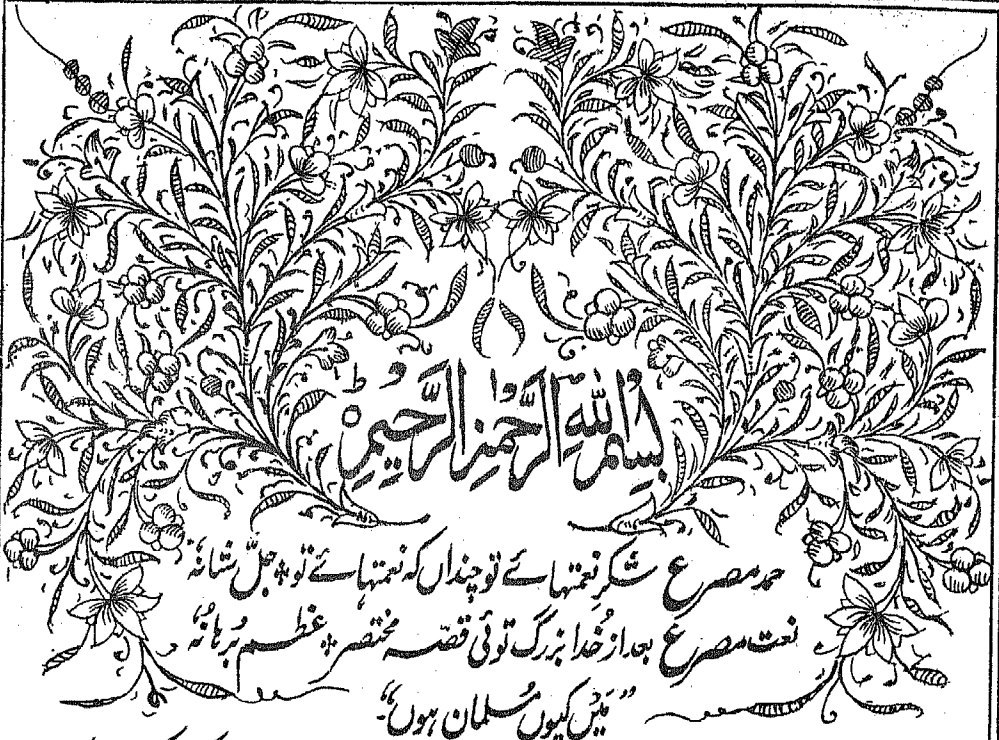 بِسْمِ اللهِ الرَّحْمٰنِ الرَّحِیْمِ ط
حمد مصرع شکرِ نعمتہائے تو چنداں کہ نعمتہائے تو؞ جلَّ شانہٗ
نعت مصرع بعد از خُدا بزرگ توئی قصّہ مختصر؞ عظم بُرہانُہٗ
"مَیں کیوں مُسلمان ہوں"